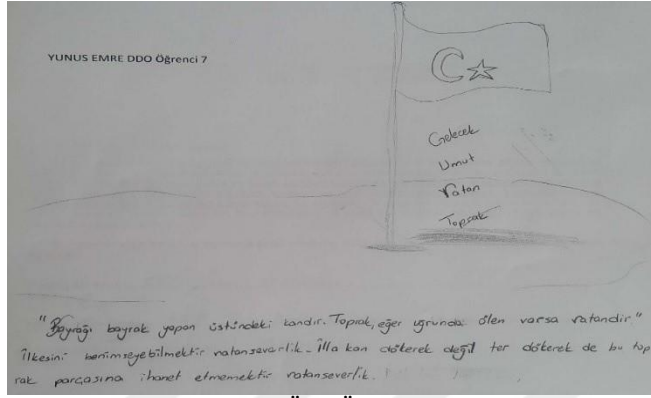 YUNUS EMRE DDO Öğrenci 7
Gelecek
Umut
Vatan
Toprak
"Bayrağı bayrak yapan üstündeki kandır. Toprak, eğer uğrunda ölen varsa vatandır."
İlkesini benimseyebilmektir vatanseverlik. İlla kan dökerek değil ter dökerek de bu top
rak parçasına ihanet etmemektir vatanseverlik.